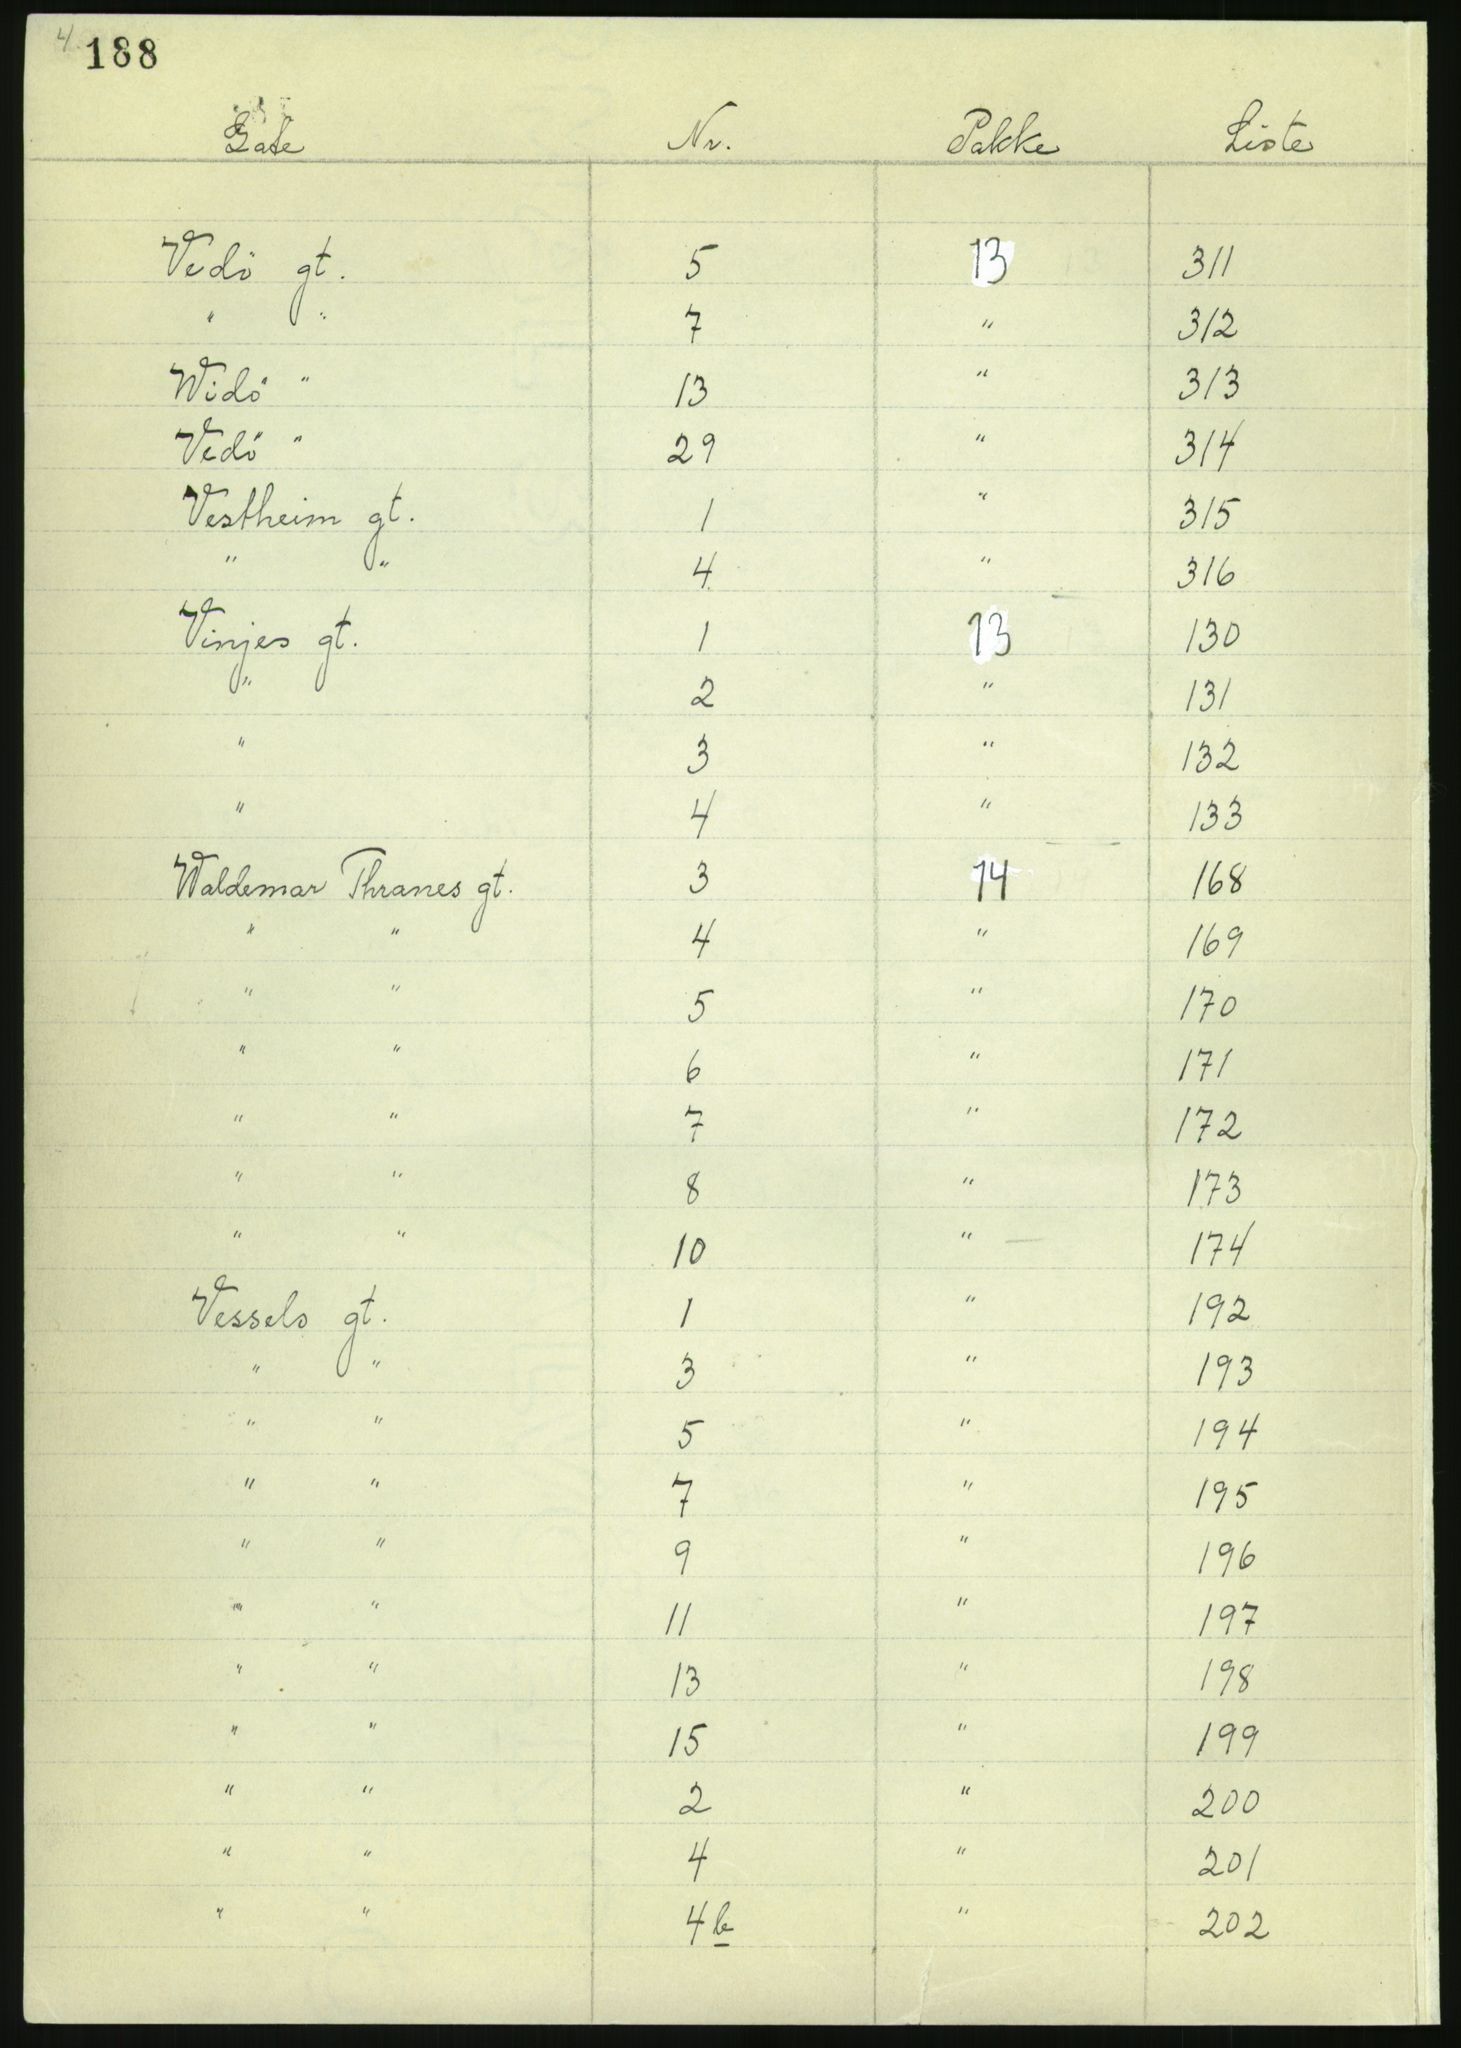 4 188
Gate Nr. Pakke Liste
Vedö gt. 5 13 311
" " 7 " 312
Widö " 13 " 313
Vedö " 29 " 314
Vestheim gt. 1 " 315
" " 4 " 316
Vinjes gt. 1 13 130
" 2 " 131
" 3 " 132
" 4 " 133
Waldemar Thranes gt. 3 14 168
" " 4 " 169
" " 5 " 170
" " 6 " 171
" " 7 " 172
" " 8 " 173
" " 10 " 174
Vessels gt. 1 " 192
" " 3 " 193
" " 5 " 194
" " 7 " 195
" " 9 " 196
" " 11 " 197
" " 13 " 198
" " 15 " 199
" " 2 " 200
" " 4 " 201
" " 4b " 202